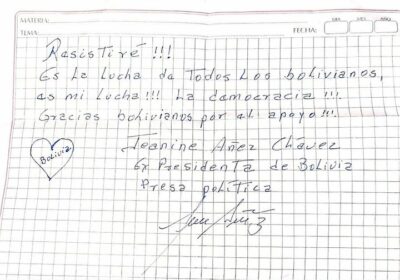 MATERIA:
TEMA:
FECHA:
DIA
MES
AÑO
Resistiré !!!
Es La Lucha de Todos Los bolivianos,
es mi Lucha!!! La democracia !!!
Gracias bolivianos por el apoyo!!!
Bolivia
Jeanine Añez Chávez
Ex Presidenta de Bolivia
Presa política